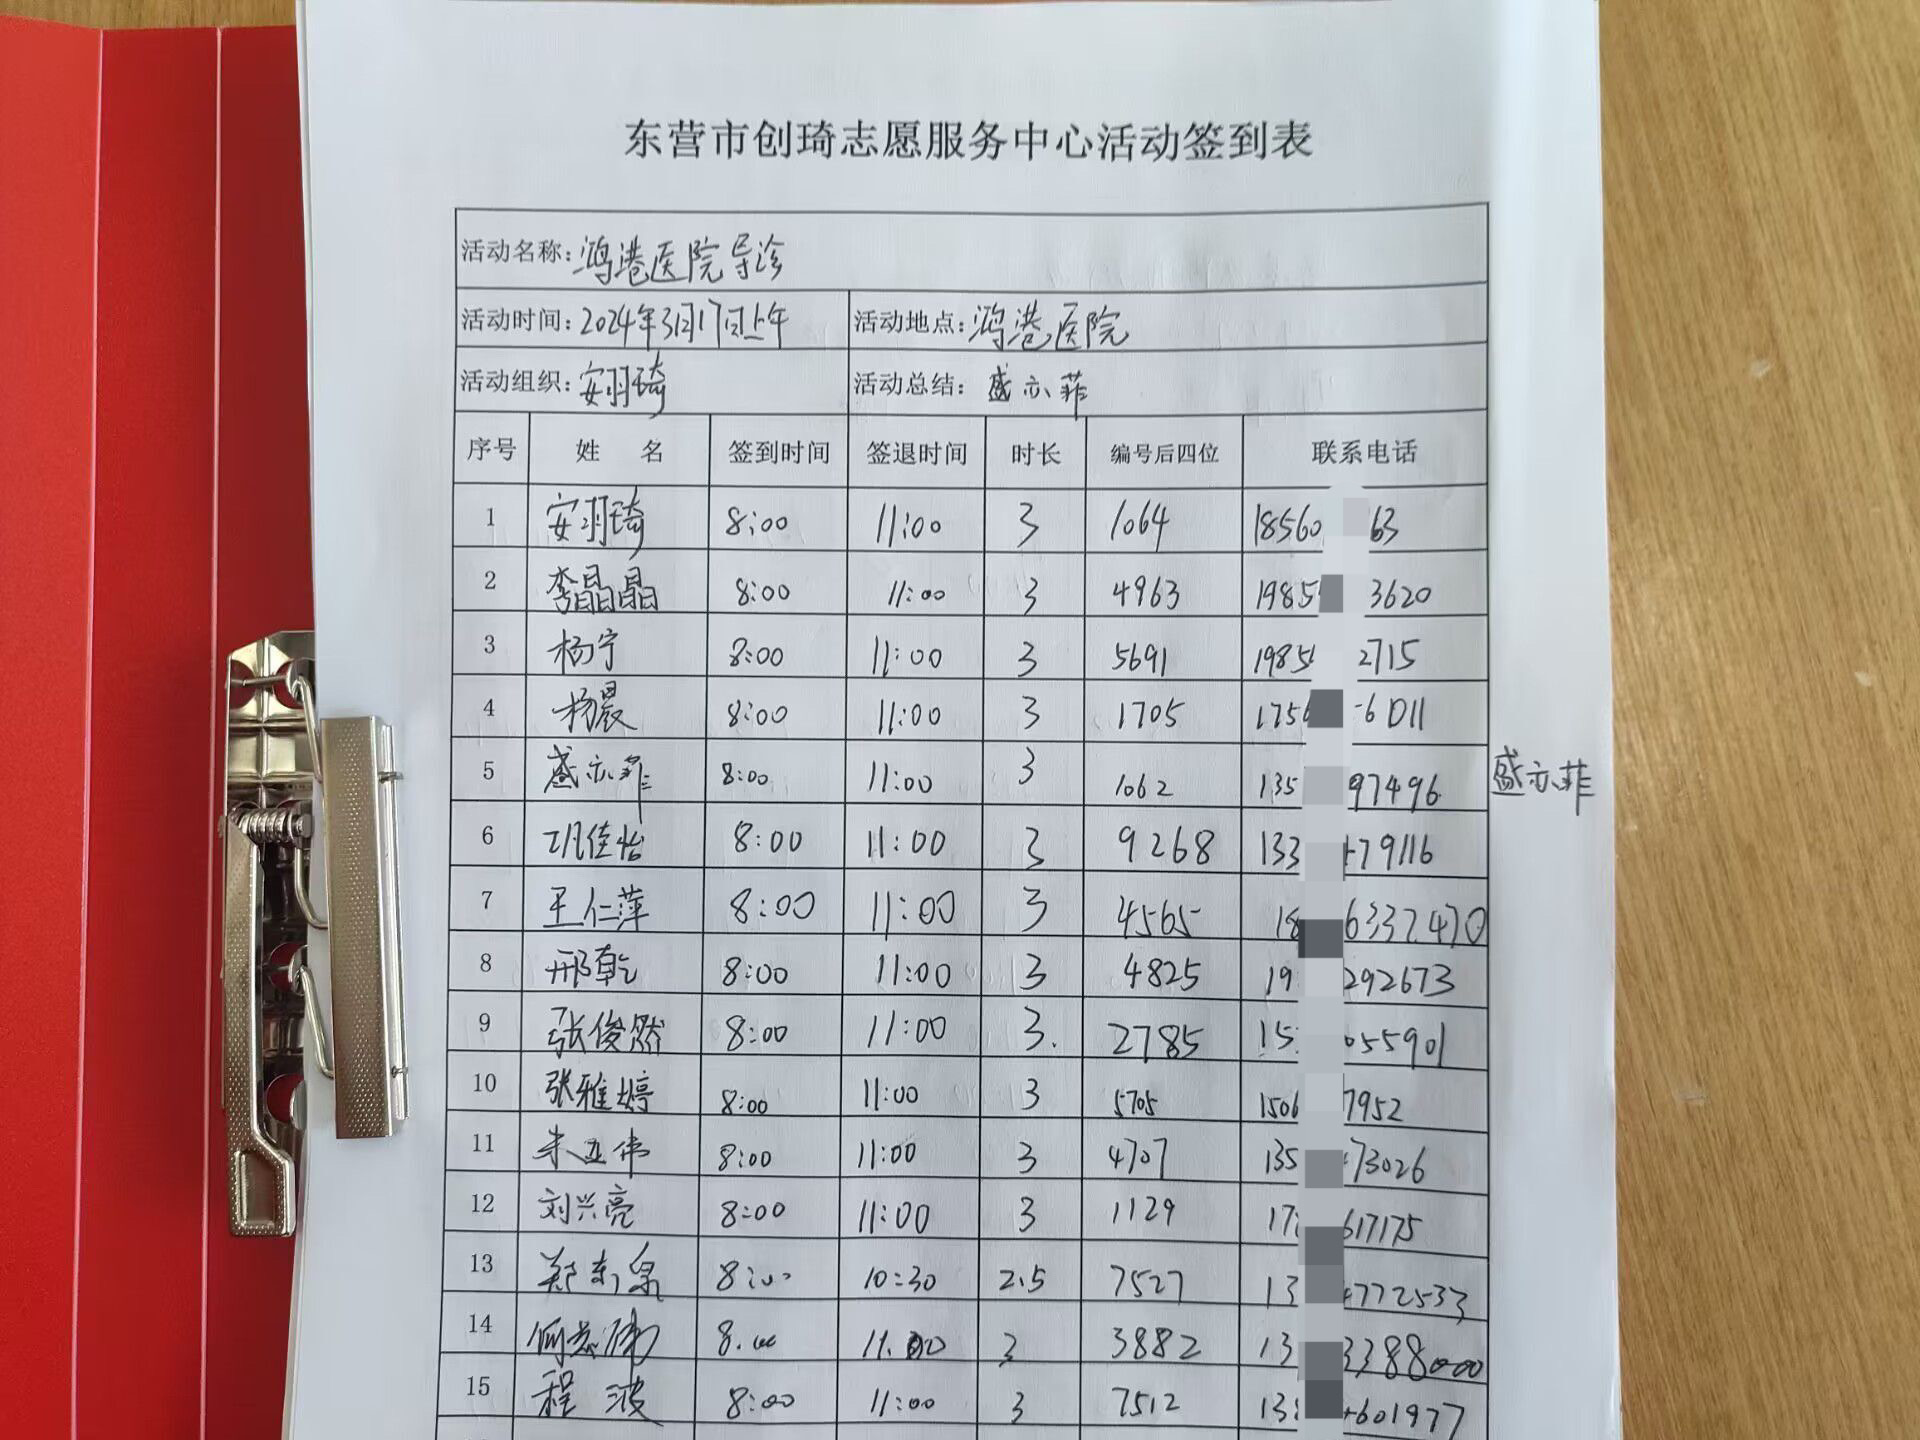 东营市创琦志愿服务中心活动签到表
活动名称：鸿港医院导诊
活动时间：2024年3月17日上午 活动地点：鸿港医院
活动组织：安羽琦 活动总结：盛亦菲
序号 姓 名 签到时间 签退时间 时长 编号后四位 联系电话
1 安羽琦 8:00 11:00 3 1064 18560 63
2 李晶晶 8:00 11:00 3 4963 1985 3620
3 杨宁 8:00 11:00 3 5691 1985 2715
4 杨晨 8:00 11:00 3 1705 175 6011
5 盛亦菲 8:00 11:00 3 1062 135 97496 盛亦菲
6 巩佳怡 8:00 11:00 3 9268 133 79116
7 王仁萍 8:00 11:00 3 4565 18 6337470
8 邢乾 8:00 11:00 3 4825 19 292673
9 张俊然 8:00 11:00 3. 2785 15 055901
10 张雅婷 8:00 11:00 3 5705 1506 7952
11 朱亚伟 8:00 11:00 3 4707 135 73026
12 刘兴亮 8:00 11:00 3 1129 17 617175
13 8:00 10:30 2.5 7527 13 4772533
14 8.00 11.00 3 3882 13 3388000
15 程波 8:00 11:00 3 7512 13 601977